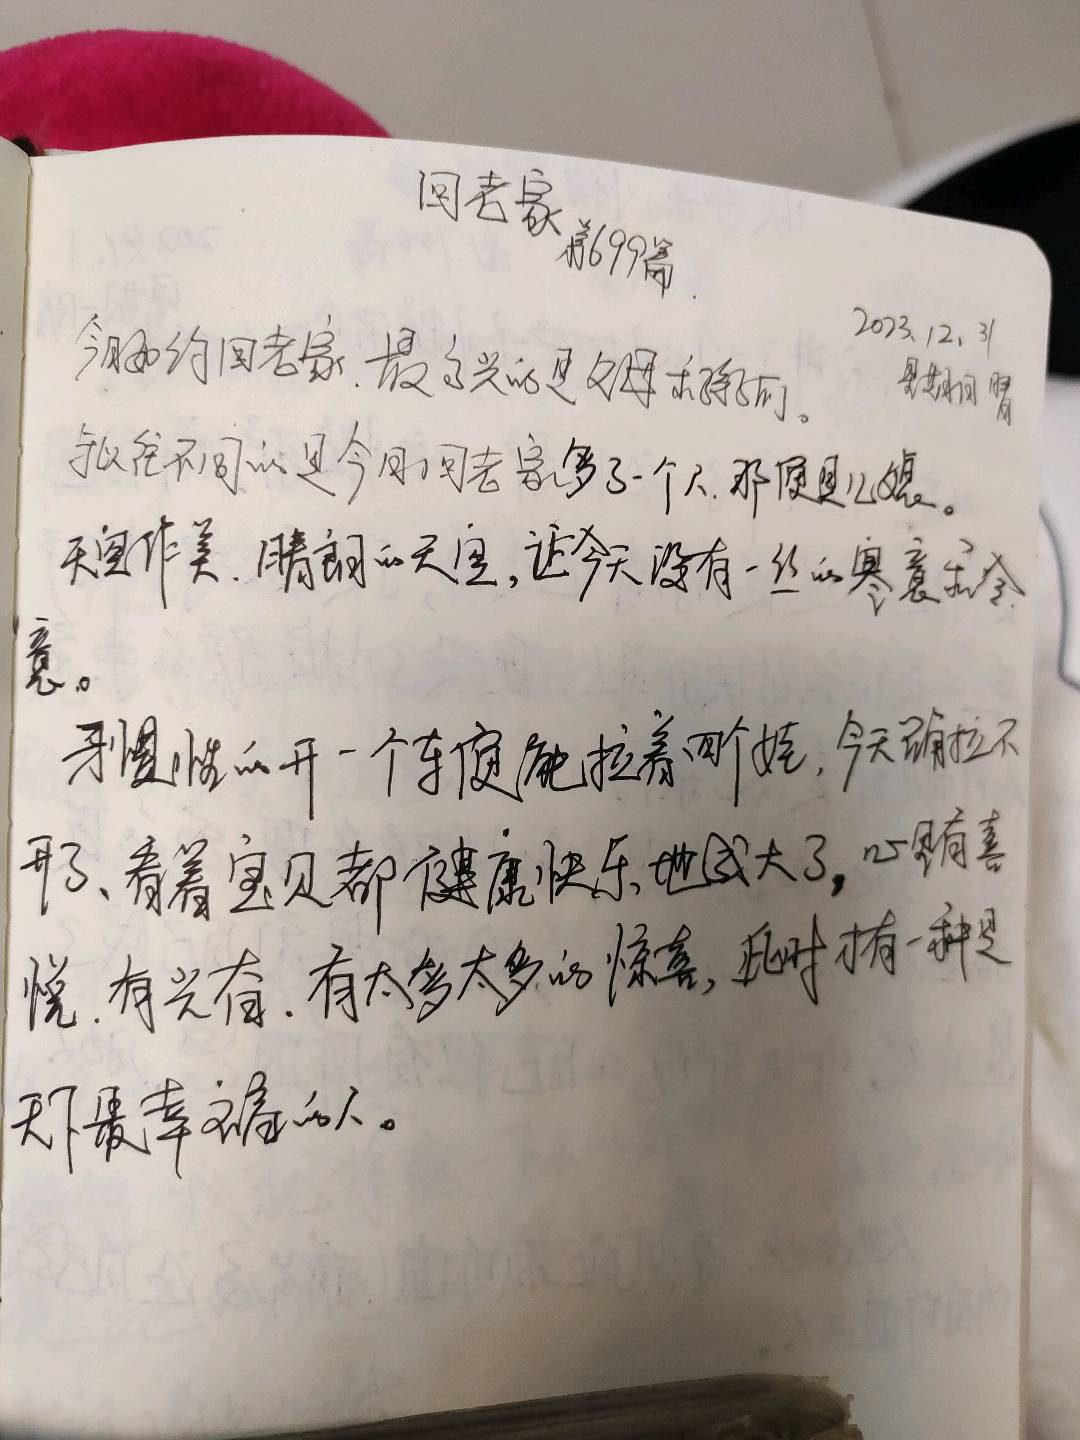 回老家
第699篇
2023.12.31
星期日 晴
今日如约回老家.最高兴的是父母和孩子们。
与以往不同的是今日回老家多了一个人.那便是儿媳。
天空作美.晴朗的天空,让今天没有一丝的寒意和冷
意。
习惯性的开一个车便能拉着四个娃,今天确拉不
开了、看着宝贝都健康快乐地成大了,心里有喜
悦.有兴奋.有太多太多的惊喜,此时才有一种是
天下最幸福的人。